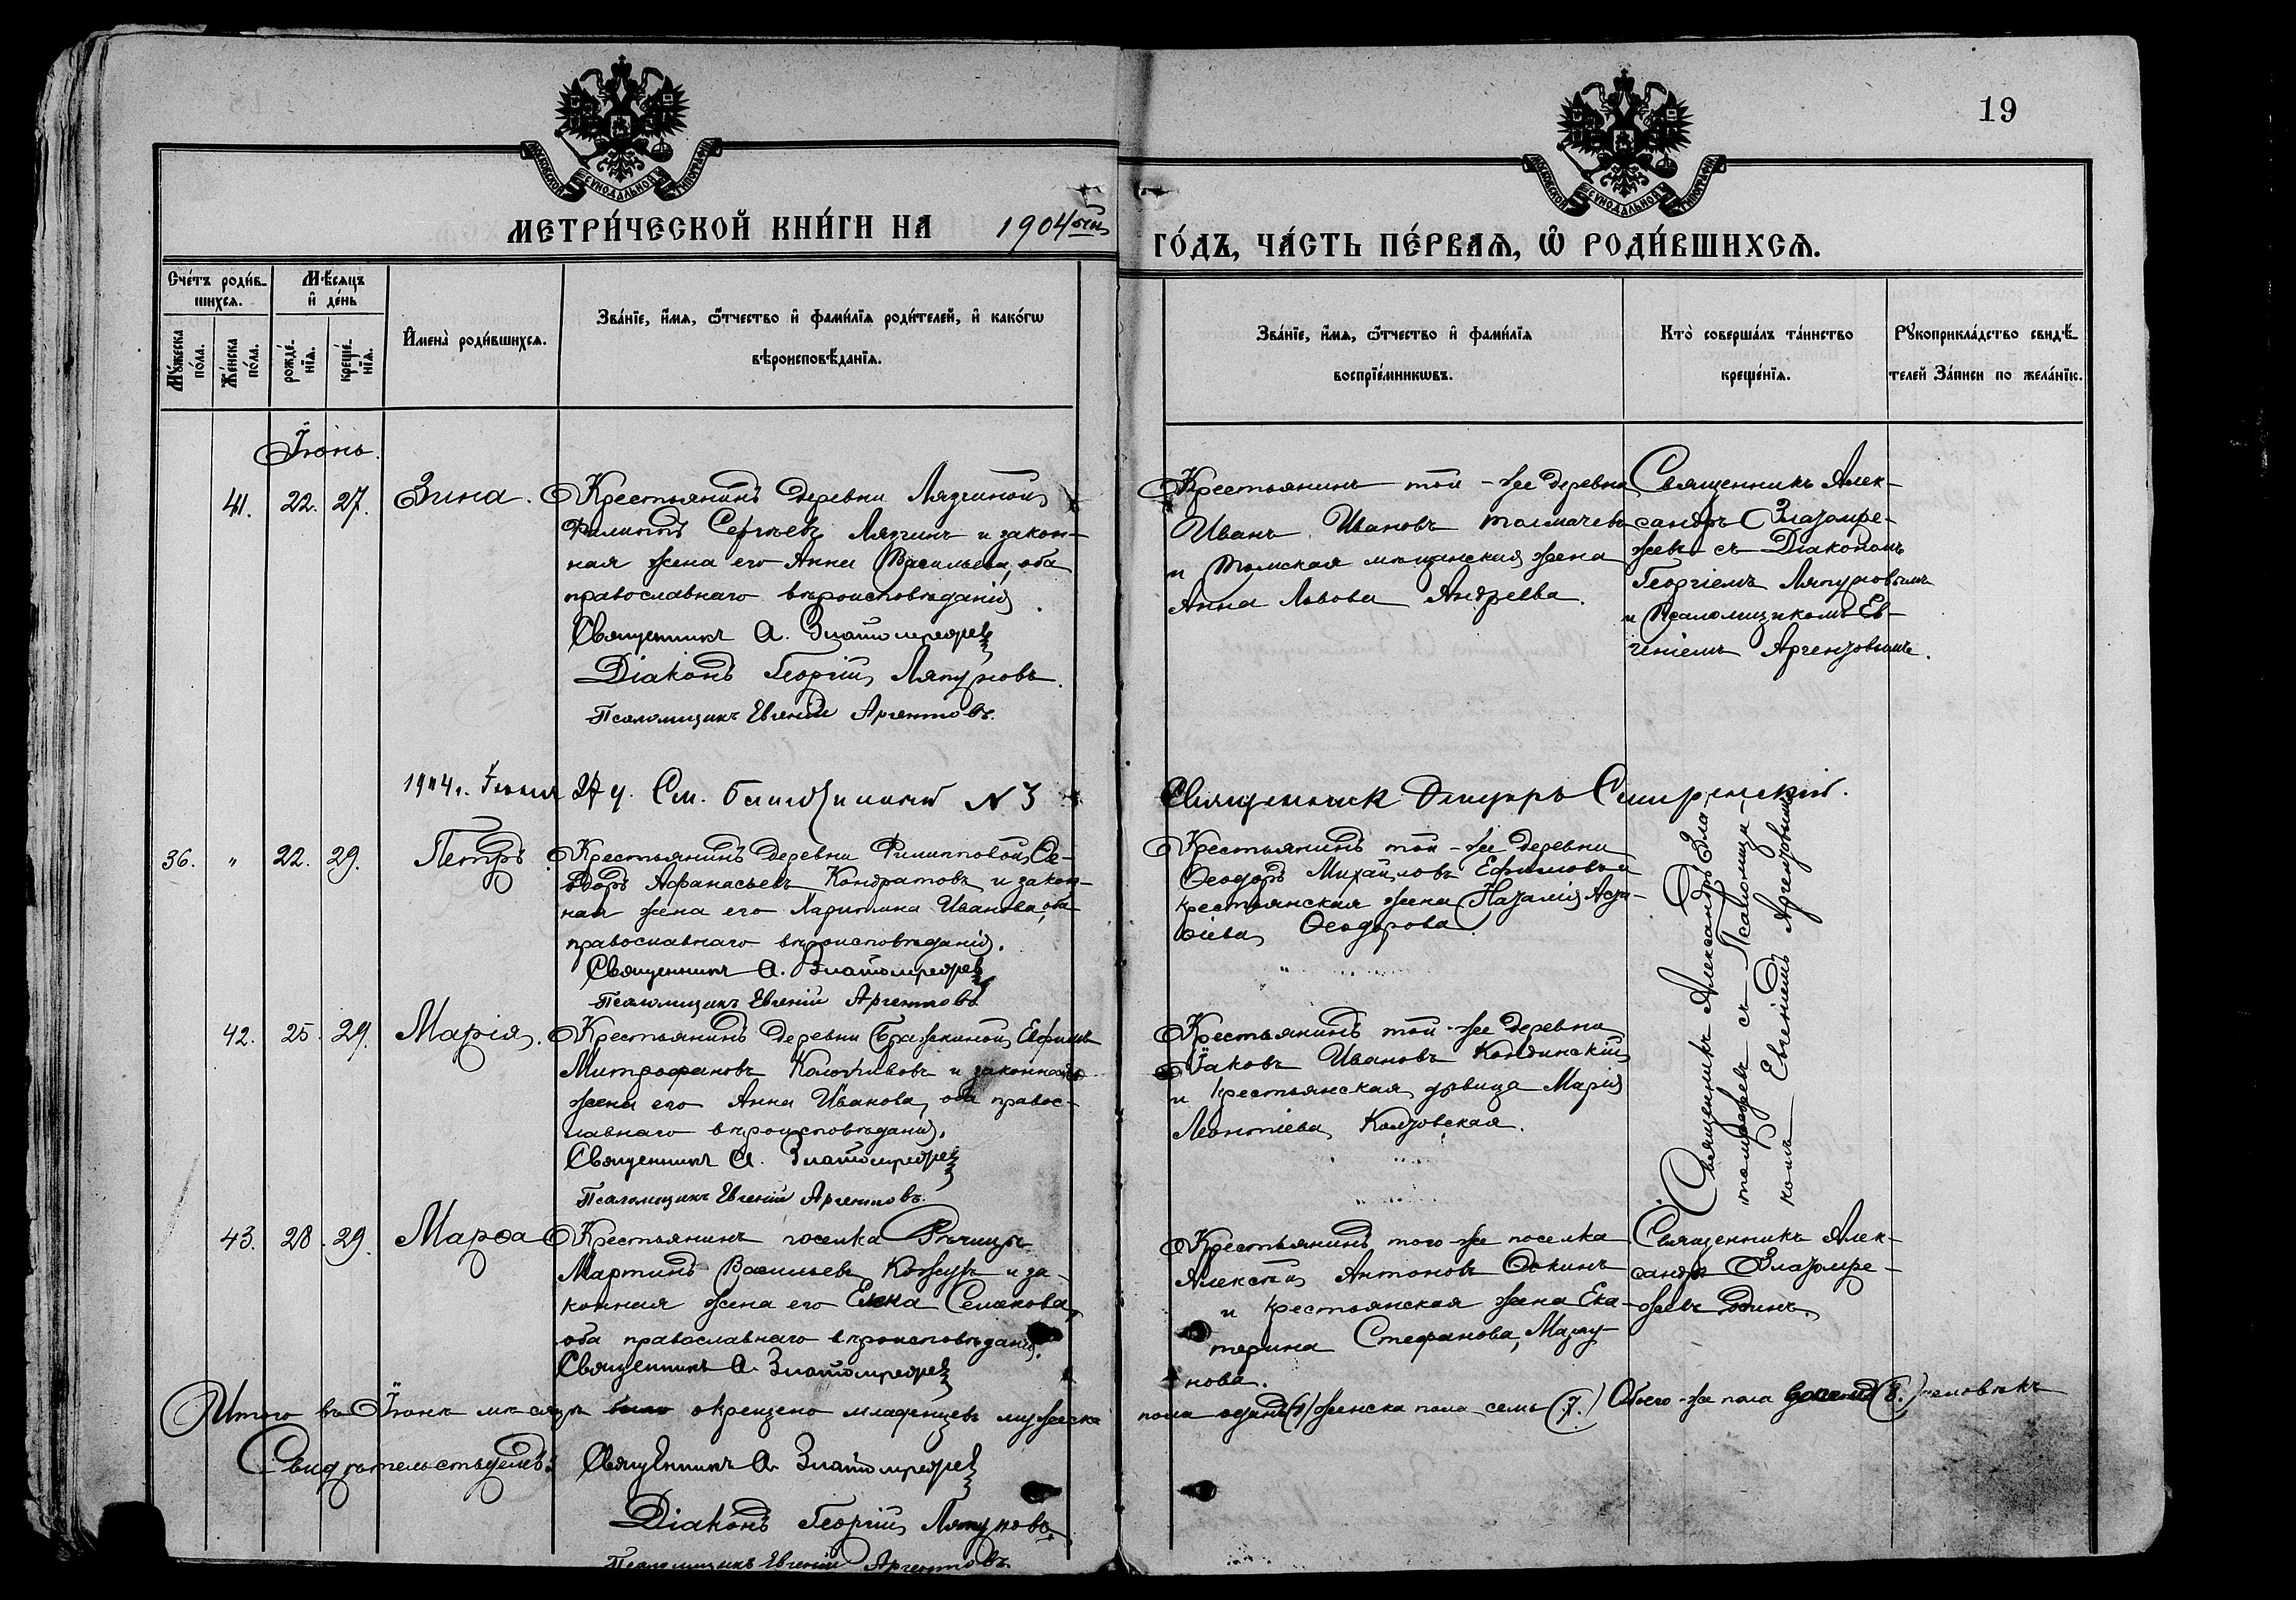 19
МОСКОВСКОЙ СѴНОДАЛЬНОЙ ТИПОГРАФІИ
МОСКОВСКОЙ СѴНОДАЛЬНОЙ ТИПОГРАФІИ
МЕТРИ́ЧЕСКОЙ КНИ́ГИ НА 1904ый ГО́ДЪ, ЧА́СТЬ ПЕ́РВАѦ, Ѡ҆ РОДИ́ВШИХСѦ.
Сче́тъ роди́в-
шихсѧ.
Мѣ́сѧцъ
и҆ де́нь
Мꙋ́жеска
по́ла.
Же́нска
по́ла.
рожде́-
нїѧ.
креще́-
нїѧ.
И҆мена̀ роди́вшихсѧ.
Зва́нїе, и҆́мѧ, ѻ҆́тчество и҆ фами́лїѧ роди́телей, и҆ како́гѡ
вѣроисповѣ́данїѧ.
Зва́нїе, и҆́мѧ, ѻ҆́тчество и҆ фами́лїѧ
воспрїе́мникѡвъ.
Кто̀ соверша́лъ та́инство
креще́нїѧ.
Рꙋкоприкла́дство свидѣ́-
телей За́писи по жела́нїю.
Іюнь.
41. 22. 27. Зина. Крестьянинъ деревни Лязгиной
Филиппъ Сергѣевъ Лязгинъ и закон-
ная жена его Анна Васильева, оба
православнаго вѣроисповѣданія.
Священникъ А. Златомрежевъ
Діаконъ Георгій Ляпуновъ.
Псаломщикъ Евгеній Аргентовъ.
Крестьянинъ той-же деревни
Иванъ Ивановъ Толмачевъ
и Томская мѣщанская жена
Анна Львова Андреева.
Священникъ Алек-
сандръ Златомре-
жевъ съ Діакономъ
Георгіемъ Ляпуновымъ
и Псаломщикомъ Ев-
геніемъ Аргентовымъ.
1904г. Іюня См. № 3
Священник Смиренский.
36. " 22. 29. Петръ. Крестьянинъ деревни Филипповой Ѳе-
одоръ Афанасьевъ Кондратовъ и закон-
ная жена его Харитина Иванова, оба
православнаго вѣроисповѣданія.
Священникъ А. Златомрежевъ
Псаломщикъ Евгеній Аргентовъ
Крестьянинъ той-же деревни
Ѳеодоръ Михайловъ Ефимовъ и
крестьянская жена Наталія
Ѳеодорова.
Священникъ Александръ Зла-
томрежевъ съ Псаломщи-
комъ Евгеніемъ Аргентовымъ
42. 25. 29. Марія. Крестьянинъ деревни Бражкиной Ефимъ
Митрофановъ и законная
жена его Анна Иванова, оба правос-
лавнаго вѣроисповѣданія.
Священникъ А. Златомрежевъ
Псаломщикъ Евгеній Аргентовъ.
Крестьянинъ той-же деревни
Іаковъ Ивановъ Кондинскій
и крестьянская дѣвица Марія
Леонтіева
43. 28. 29. Марѳа Крестьянинъ поселка Рѣчицы
Мартинъ Васильевъ Кожухъ и за-
конная жена его Елена Семенова,
оба православнаго вѣроисповѣданія.
Священникъ А. Златомрежевъ
Крестьянинъ того-же поселка
Алексѣй Антоновъ
и крестьянская жена Ека-
терина Стефанова,
нова.
Священникъ Алек-
сандръ Златомре-
жевъ одинъ.
Итого въ Іюнѣ мѣсяцѣ было окрещено младенцевъ мужеска
пола одинъ (1) женска пола семь (7.) Обоего-же пола восемь (8.) человѣкъ
Свидѣтельствуемъ: Священникъ А. Златомрежевъ
Діаконъ Георгій Ляпуновъ.
Псаломщикъ Евгеній Аргентовъ.